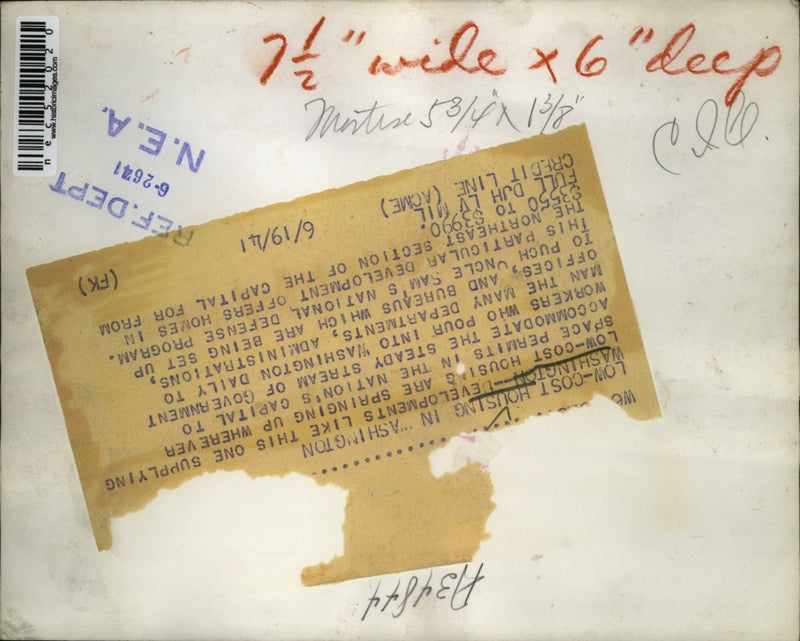 7 1/2" wide x 6" deep
Mortise 5 3/4" x 1 3/8"
necs52020
www.historicimages.com
REF. DEPT
6-26-41
N.E.A.
LOW-COST HOUSING IN WASHINGTON
WASHINGTON--DEVELOPMENTS LIKE THIS ONE SUPPLYING
LOW-COST HOUSING ARE SPRINGING UP WHEREVER
SPACE PERMITS IN THE NATION'S CAPITAL TO
ACCOMMODATE THE STEADY STREAM OF GOVERNMENT
WORKERS WHO POUR INTO WASHINGTON DAILY TO
MAN THE MANY DEPARTMENTS, ADMINISTRATIONS,
OFFICES, AND BUREAUS WHICH ARE BEING SET UP
TO PUCH UNCLE SAM'S NATIONAL DEFENSE PROGRAM.
THIS PARTICULAR DEVELOPMENT OFFERS HOMES IN
THE NORTHEAST SECTION OF THE CAPITAL FOR FROM
$3550 TO $3990.
FULL DJH LV MIL
CREDIT LINE (ACME) 6/19/41 (FK)
A34844